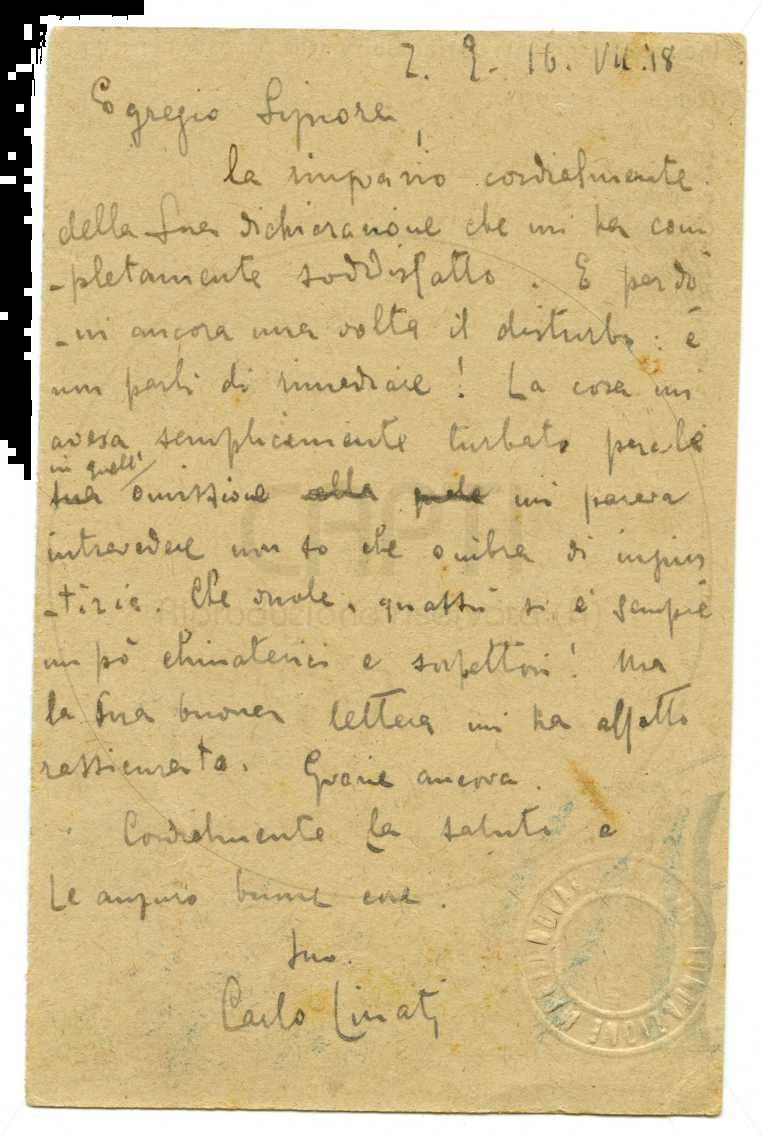 Z. G. 16. VII. 18
Egregio Signore,
la ringrazio cordialmente
della Sua dichiarazione che mi ha com
-pletamente soddisfatto. E perdo
-ni ancora una volta il disturbo: e
non parli di rimediare! La cosa mi
aveva semplicemente turbato perchè
in quell'
sua omissione alla quale mi pareva
intravedere non so che ombra di ingius
-tizia. Che vuole, quassù si è sempre
un pò climaterici e sospettosi! Ma
la Sua buona lettera mi ha affatto
rassicurato. Grazie ancora.
Cordialmente La saluto e
Le auguro buone cose.
Suo.
Carlo Linati